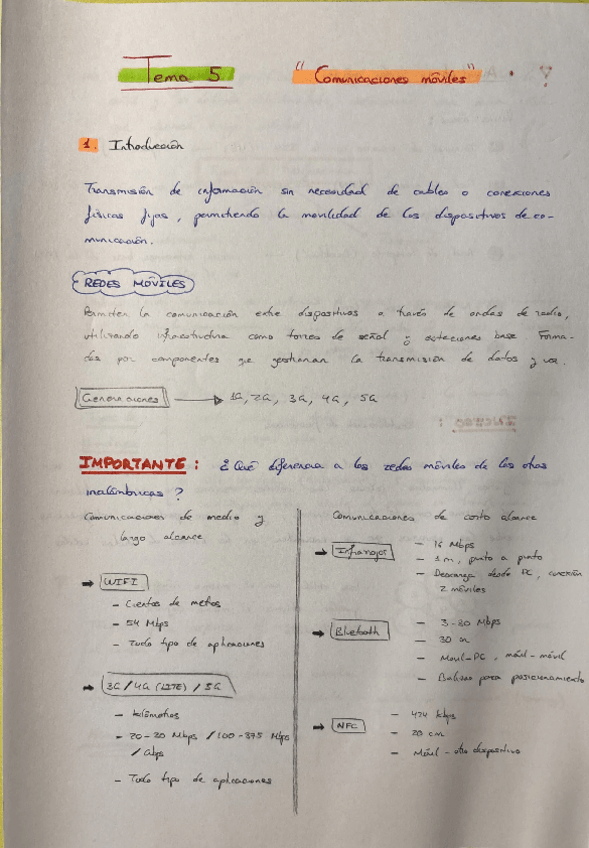 Tema 5 "Comunicaciones móviles".
1. Introducción
Transmisión de información sin necesidad de cables o conexiones
físicas fijas, permitiendo la movilidad de los dispositivos de co-
municación.
REDES MÓVILES
Permiten la comunicación entre dispositivos a través de ondas de radio,
utilizando infraestructura como torres de señal y estaciones base. Forma-
das por componentes que gestionan la transmisión de datos y voz.
Generaciones → 1G, 2G, 3G, 4G, 5G
IMPORTANTE: ¿Qué diferencia a las redes móviles de las otras
inalámbricas?
Comunicaciones de medio y
largo alcance
→ WIFI
- Cientos de metros
- 54 Mbps
- Todo tipo de aplicaciones
→ 3G / 4G (LITE) / 5G
- kilómetros
- 20-30 Mbps / 100-375 Mbps
/ Gbps
- Todo tipo de aplicaciones
Comunicaciones de corto alcance
→ Infrarrojos
- 16 Mbps
- 1 m, punto a punto
- Descarga desde PC, conexión
2 móviles
→ Bluetooth
- 3-20 Mbps
- 30 m
- Movil-PC, móvil-móvil
- Balizas para posicionamiento
→ NFC
- 424 kbps
- 20 cm
- Móvil - otro dispositivo